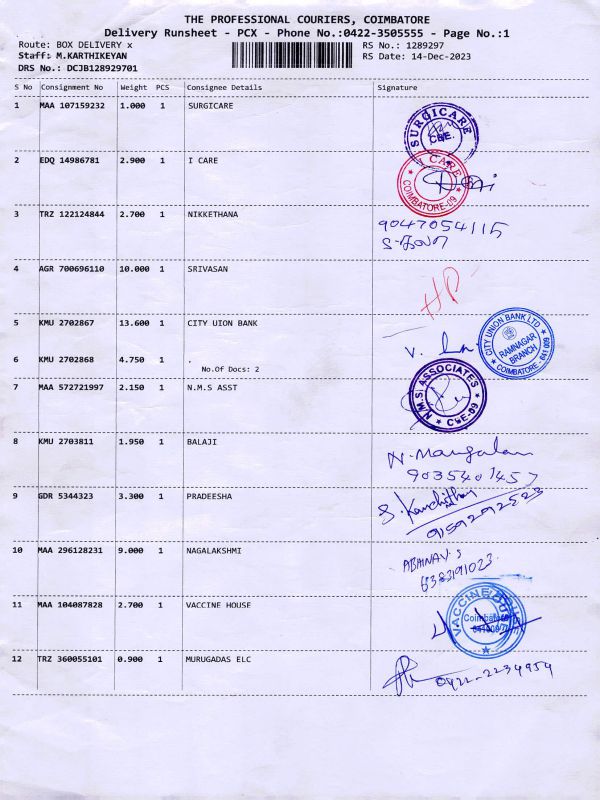 THE PROFESSIONAL COURIERS, COIMBATORE
Delivery Runsheet - PCX - Phone No.:0422-3505555 - Page No.:1
Route: BOX DELIVERY x RS No.: 1289297
Staff: M.KARTHIKEYAN RS Date: 14-Dec-2023
DRS No.: DCJB128929701
S No Consignment No Weight PCS Consignee Details Signature
1 MAA 107159232 1.000 1 SURGICARE
SURGICARE
CBE.
2 EDQ 14986781 2.900 1 I CARE
I CARE
COIMBATORE-09
3 TRZ 122124844 2.700 1 NIKKETHANA
9047054115
4 AGR 700696110 10.000 1 SRIVASAN
HP
5 KMU 2702867 13.600 1 CITY UION BANK
CITY UNION BANK LTD
RAMNAGAR
BRANCH
COIMBATORE - 641 009
6 KMU 2702868 4.750 1 .
No.Of Docs: 2
7 MAA 572721997 2.150 1 N.M.S ASST
N.M.S ASSOCIATES
CBE-09
8 KMU 2703811 1.950 1 BALAJI
N. Mangalam
9035401457
9 GDR 5344323 3.300 1 PRADEESHA
10 MAA 296128231 9.000 1 NAGALAKSHMI
ABHINAV.S
6383191023
11 MAA 104087828 2.700 1 VACCINE HOUSE
VACCINE HOUSE
Coimbatore
12 TRZ 360055101 0.900 1 MURUGADAS ELC
0422-2234954